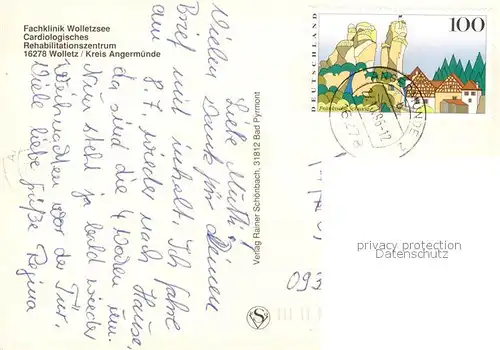 Fachklinik Wolletzsee
Cardiologisches
Rehabilitationszentrum
16278 Wolletz / Kreis Angermünde
Liebe Mutti,
Vielen Dank für Deinen
Brief mit Inhalt. Ich fahre
8.7 wieder nach Hause,
da sind die 4 Wochen um.
Nun steht ja bald wieder
Weihnachten vor der Tür.
Viele liebe Grüße Regina
Verlag Rainer Schönbach, 31812 Bad Pyrmont
S
DEUTSCHLAND
100
093
privacy protection
Datenschutz